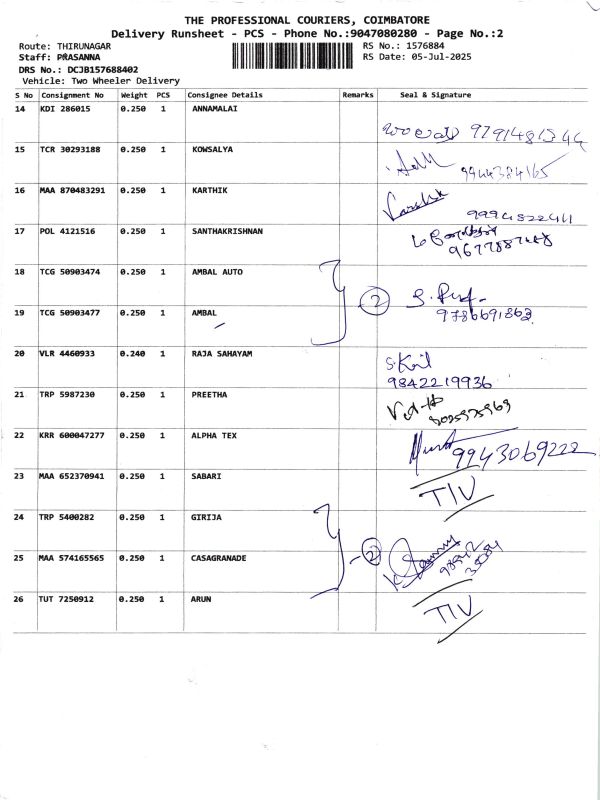 THE PROFESSIONAL COURIERS, COIMBATORE
Delivery Runsheet - PCS - Phone No.:9047080280 - Page No.:2
Route: THIRUNAGAR RS No.: 1576884
Staff: PRASANNA RS Date: 05-Jul-2025
DRS No.: DCJB157688402
Vehicle: Two Wheeler Delivery
S No Consignment No Weight PCS Consignee Details Remarks Seal & Signature
14 KDI 286015 0.250 1 ANNAMALAI
15 TCR 30293188 0.250 1 KOWSALYA
9944384165
16 MAA 870483291 0.250 1 KARTHIK
9994522411
17 POL 4121516 0.250 1 SANTHAKRISHNAN
18 TCG 50903474 0.250 1 AMBAL AUTO
2
19 TCG 50903477 0.250 1 AMBAL
9786691863
20 VLR 4460933 0.240 1 RAJA SAHAYAM
9842219936
21 TRP 5987230 0.250 1 PREETHA
22 KRR 600047277 0.250 1 ALPHA TEX
9943069222
23 MAA 652370941 0.250 1 SABARI
TIV
24 TRP 5400282 0.250 1 GIRIJA
2
25 MAA 574165565 0.250 1 CASAGRANADE
26 TUT 7250912 0.250 1 ARUN
TIV